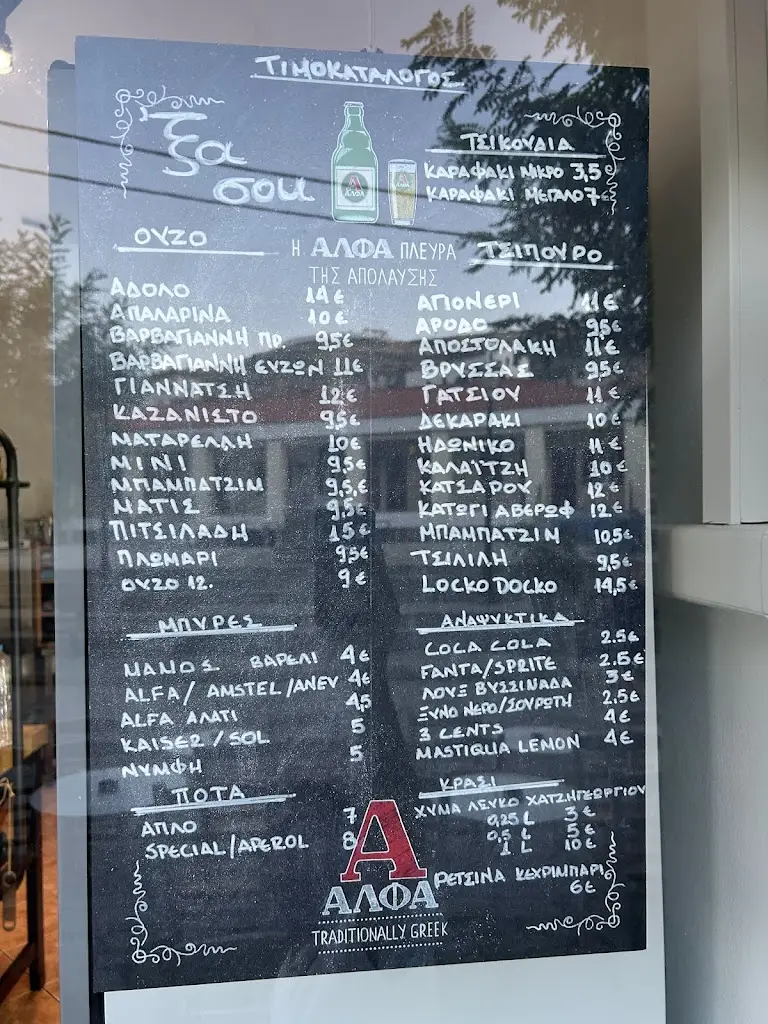 ΤΙΜΟΚΑΤΑΛΟΓΟΣ
ξα σου
ΑΛΦΑ
ΤΣΙΚΟΥΔΙΑ
ΚΑΡΑΦΑΚΙ ΜΙΚΡΟ 3,5€
ΚΑΡΑΦΑΚΙ ΜΕΓΑΛΟ 7€
Η ΑΛΦΑ ΠΛΕΥΡΑ
ΤΗΣ ΑΠΟΛΑΥΣΗΣ
ΟΥΖΟ
ΑΔΟΛΟ 14€
ΑΠΑΛΑΡΙΝΑ 10€
ΒΑΡΒΑΓΙΑΝΝΗ ΠΡ. 9,5€
ΒΑΡΒΑΓΙΑΝΝΗ ΕΥΖΩΝ 11€
ΓΙΑΝΝΑΤΣΗ 12€
ΚΑΖΑΝΙΣΤΟ 9,5€
ΜΑΤΑΡΕΛΛΗ 10€
ΜΙΝΙ 9,5€
ΜΠΑΜΠΑΤΖΙΜ 9,5,€
ΜΑΤΙΣ 9,5€
ΠΙΤΣΙΛΑΔΗ 15€
ΠΛΩΜΑΡΙ 9,5€
ΟΥΖΟ 12. 9€
ΤΣΙΠΟΥΡΟ
ΑΠΟΝΕΡΙ 11€
ΑΡΟΔΟ 9,5€
ΑΠΟΣΤΟΛΑΚΗ 11€
ΒΡΥΣΣΑΣ 9,5€
ΓΑΤΣΙΟΥ 11€
ΔΕΚΑΡΑΚΙ 10€
ΗΔΩΝΙΚΟ 11€
ΚΑΛΑΪΤΖΗ 10€
ΚΑΤΣΑΡΟΥ 12€
ΚΑΤΩΓΙ ΑΒΕΡΩΦ 12€
ΜΠΑΜΠΑΤΖΙΜ 10,5€
ΤΣΙΛΙΛΗ 9,5€
LOCKO DOCKO 14,5€
ΜΠΥΡΕΣ
ΜΑΜΟΣ ΒΑΡΕΛΙ 4€
ALFA/ AMSTEL/ANEV 4€
ALFA ΑΛΑΤΙ 4,5
KAISER/SOL 5
ΝΥΜΦΗ 5
ΑΝΑΨΥΚΤΙΚΑ
COCA COLA 2.5€
FANTA/SPRITE 2.5€
ΛΟΥΞ ΒΥΣΣΙΝΑΔΑ 3€
ΞΥΝΟ ΝΕΡΟ/ΣΟΥΡΩΤΗ 2.5€
3 CENTS 4€
MASTIQUA LEMON 4€
ΠΟΤΑ
ΑΠΛΟ 7
SPECIAL/APEROL 8
ΚΡΑΣΙ
ΧΥΜΑ ΛΕΥΚΟ ΧΑΤΖΗΓΕΩΡΓΙΟΥ
0,25 L 3€
0,5 L 5€
1 L 10€
ΡΕΤΣΙΝΑ ΚΕΧΡΙΜΠΑΡΙ
6€
Α
ΑΛΦΑ
TRADITIONALLY GREEK